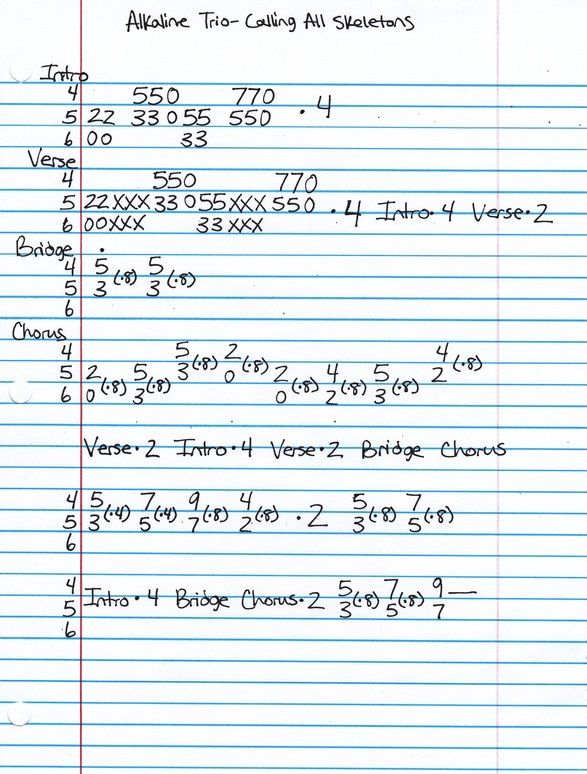 Alkaline Trio- Calling All Skeletons
Intro
4 550 770
5 22 33 0 55 550 · 4
6 00 33
Verse
4 550 770
5 22XXX 33 055XXX 550 · 4 Intro· 4 Verse· 2
6 00XXX 33 XXX
Bridge
4 5 (·8) 5 (·8)
5 3 3
6
Chorus
4 5 (·8) 2 (·8) 4 (·8)
5 2 (·8) 5 (·8) 3 0 2 (·8) 4 (·8) 5 (·8) 2
6 0 3 0 2 3
Verse· 2 Intro· 4 Verse· 2 Bridge Chorus
4 5 (·4) 7 (·4) 9 (·8) 4 (·8) · 2 5 (·8) 7 (·8)
5 3 5 7 2 3 5
6
4 Intro · 4 Bridge Chorus· 2 5 (·8) 7 (·8) 9 —
5 3 5 7
6